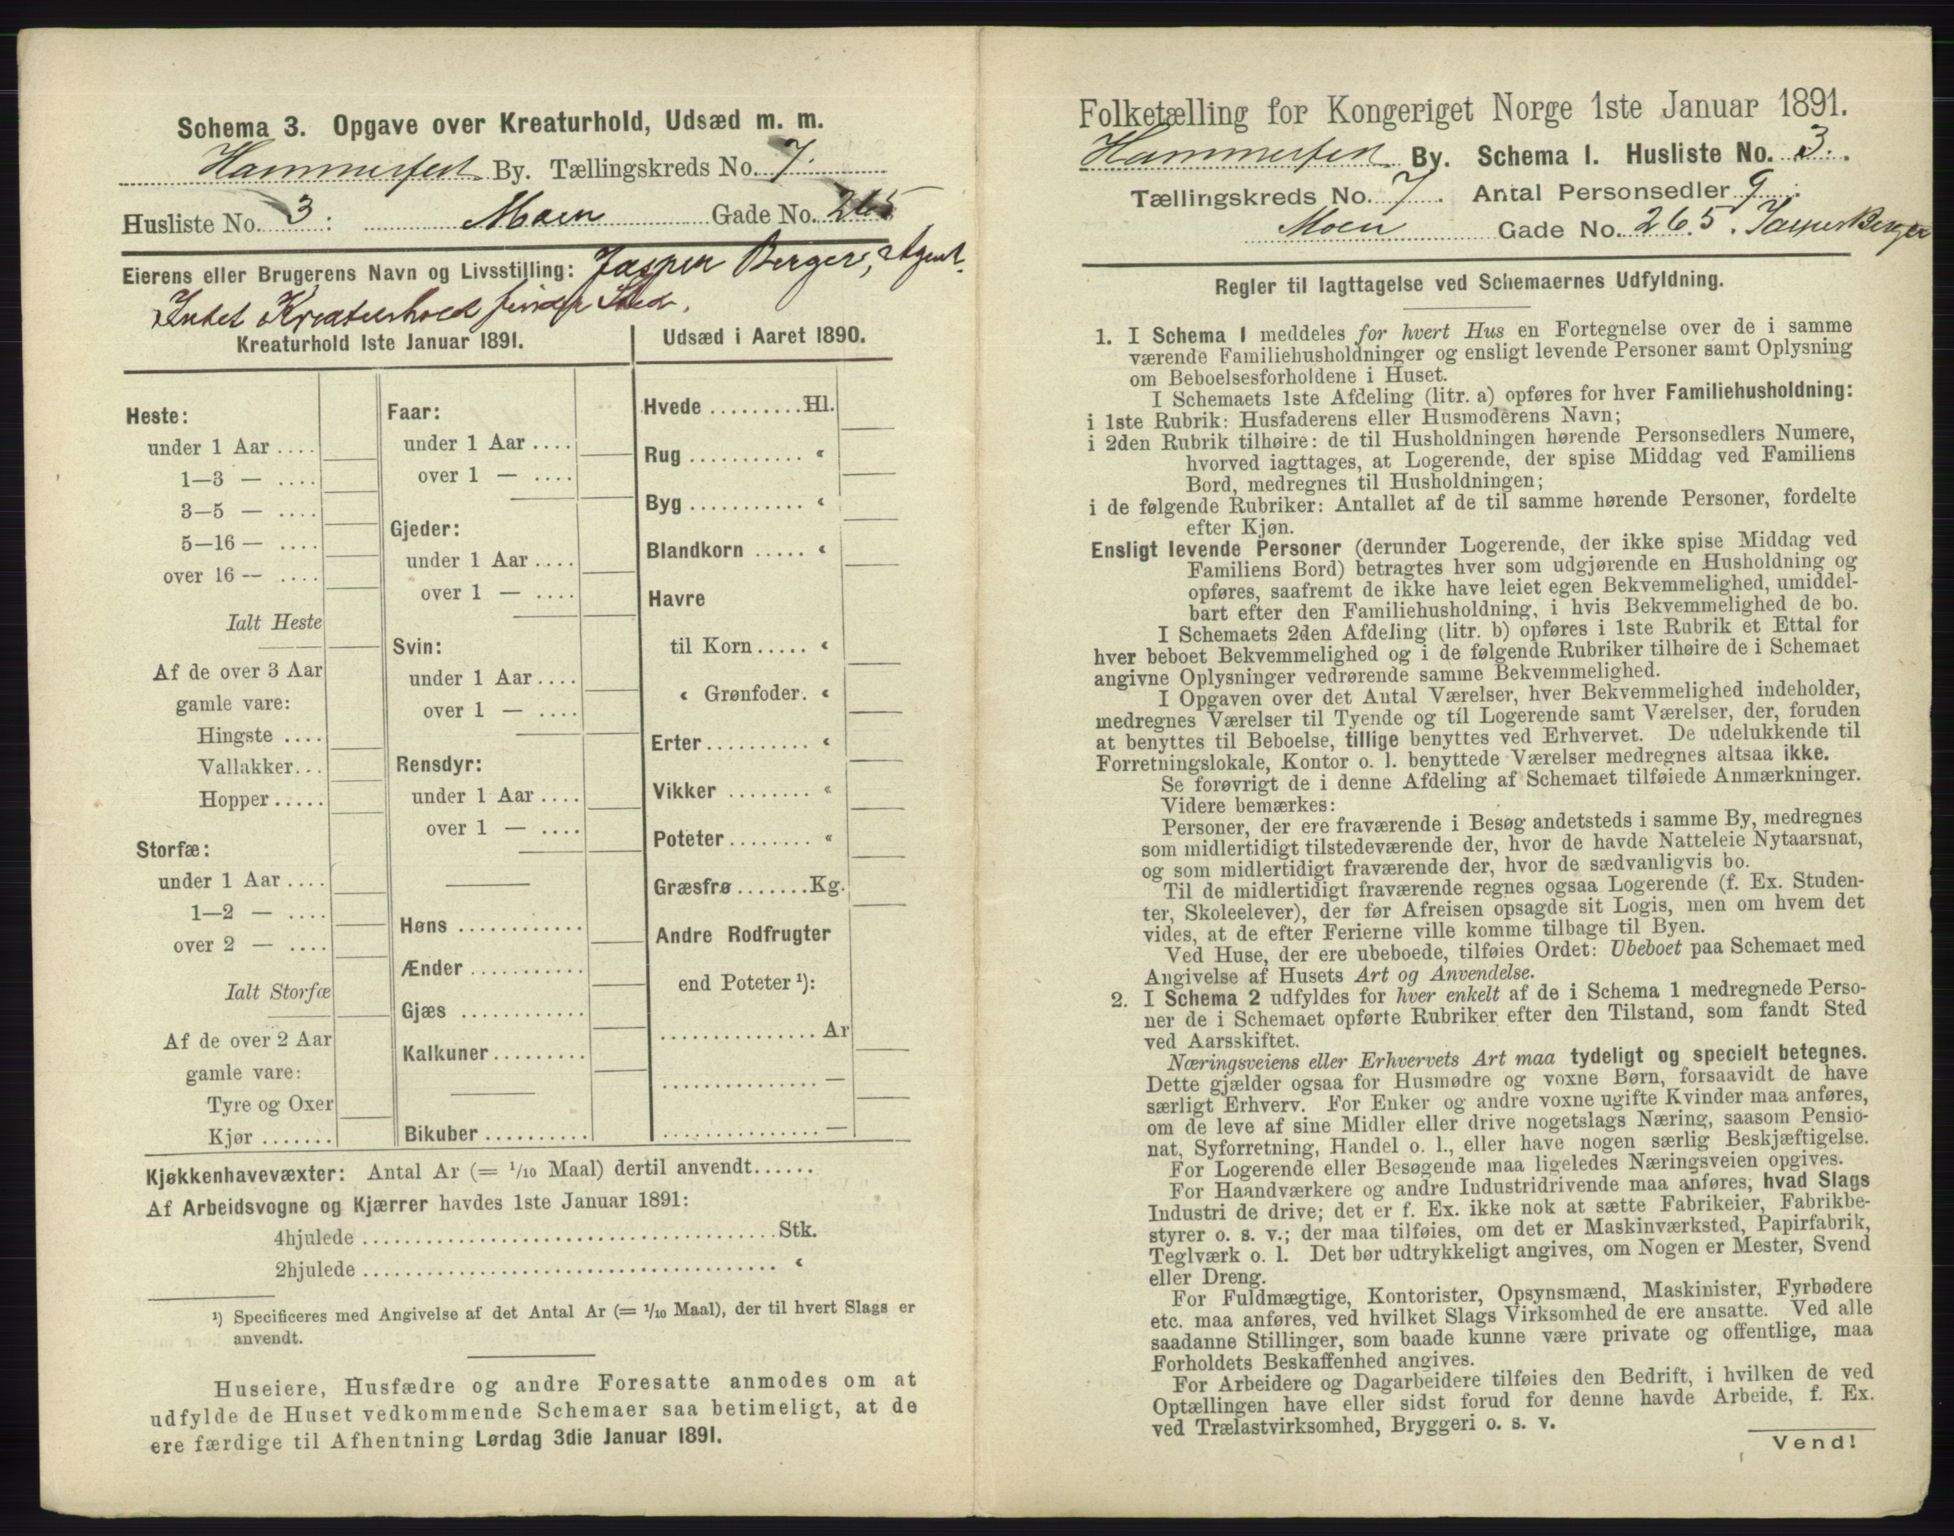 Schema 3. Opgave over Kreaturhold, Udsæd m. m.
Hammerfest By. Tællingskreds No. 7.
Husliste No. 3: Moen Gade No. 265
Eierens eller Brugerens Navn og Livsstilling: Jasper Berger, Agent.
Intet Kreaturhold finder Sted.
Kreaturhold 1ste Januar 1891.
Heste:
under 1 Aar ....
1—3 — ....
3—5 — ....
5—16 — ....
over 16 — ....
Ialt Heste
Af de over 3 Aar
gamle vare:
Hingste ....
Vallakker...
Hopper.....
Storfæ:
under 1 Aar....
1—2 — ....
over 2 — ....
Ialt Storfæ
Af de over 2 Aar
gamle vare:
Tyre og Oxer
Kjør .......
Faar:
under 1 Aar ....
over 1 — ....
Gjeder:
under 1 Aar ....
over 1 — ....
Svin:
under 1 Aar....
over 1 — ....
Rensdyr:
under 1 Aar....
over 1 — ....
Høns ............
Ænder ...........
Gjæs ............
Kalkuner.........
Bikuber..........
Udsæd i Aaret 1890.
Hvede .........Hl.
Rug ........... "
Byg ........... "
Blandkorn ..... "
Havre
til Korn..... "
" Grønfoder. "
Erter.......... "
Vikker ........ "
Poteter ....... "
Græsfrø .......Kg.
Andre Rodfrugter
end Poteter ¹):
...............Ar
............... —
............... —
Kjøkkenhavevæxter: Antal Ar (= 1/10 Maal) dertil anvendt......
Af Arbeidsvogne og Kjærrer havdes 1ste Januar 1891:
4hjulede ........................................Stk.
2hjulede ........................................ "
¹) Specificeres med Angivelse af det Antal Ar (= 1/10 Maal), der til hvert Slags er
anvendt.
Huseiere, Husfædre og andre Foresatte anmodes om at
udfylde de Huset vedkommende Schemaer saa betimeligt, at de
ere færdige til Afhentning Lørdag 3die Januar 1891.
Folketælling for Kongeriget Norge 1ste Januar 1891.
Hammerfest By. Schema 1. Husliste No. 3.
Tællingskreds No. 7. Antal Personsedler 9.
Moen Gade No. 265. Jasper Berger
Regler til Iagttagelse ved Schemaernes Udfyldning.
1. I Schema 1 meddeles for hvert Hus en Fortegnelse over de i samme
værende Familiehusholdninger og ensligt levende Personer samt Oplysning
om Beboelsesforholdene i Huset.
I Schemaets 1ste Afdeling (litr. a) opføres for hver Familiehusholdning:
i 1ste Rubrik: Husfaderens eller Husmoderens Navn;
i 2den Rubrik tilhøire: de til Husholdningen hørende Personsedlers Numere,
hvorved iagttages, at Logerende, der spise Middag ved Familiens
Bord, medregnes til Husholdningen;
i de følgende Rubriker: Antallet af de til samme hørende Personer, fordelte
efter Kjøn.
Ensligt levende Personer (derunder Logerende, der ikke spise Middag ved
Familiens Bord) betragtes hver som udgjørende en Husholdning og
opføres, saafremt de ikke have leiet egen Bekvemmelighed, umiddel-
bart efter den Familiehusholdning, i hvis Bekvemmelighed de bo.
I Schemaets 2den Afdeling (litr. b) opføres i 1ste Rubrik et Ettal for
hver beboet Bekvemmelighed og i de følgende Rubriker tilhøire de i Schemaet
angivne Oplysninger vedrørende samme Bekvemmelighed.
I Opgaven over det Antal Værelser, hver Bekvemmelighed indeholder,
medregnes Værelser til Tyende og til Logerende samt Værelser, der, foruden
at benyttes til Beboelse, tillige benyttes ved Erhvervet. De udelukkende til
Forretningslokale, Kontor o. l. benyttede Værelser medregnes altsaa ikke.
Se forøvrigt de i denne Afdeling af Schemaet tilføiede Anmærkninger.
Videre bemærkes:
Personer, der ere fraværende i Besøg andetsteds i samme By, medregnes
som midlertidigt tilstedeværende der, hvor de havde Natteleie Nytaarsnat,
og som midlertidigt fraværende der, hvor de sædvanligvis bo.
Til de midlertidigt fraværende regnes ogsaa Logerende (f. Ex. Studen-
ter, Skoleelever), der før Afreisen opsagde sit Logis, men om hvem det
vides, at de efter Ferierne ville komme tilbage til Byen.
Ved Huse, der ere ubeboede, tilføies Ordet: Ubeboet paa Schemaet med
Angivelse af Husets Art og Anvendelse.
2. I Schema 2 udfyldes for hver enkelt af de i Schema 1 medregnede Perso-
ner de i Schemaet opførte Rubriker efter den Tilstand, som fandt Sted
ved Aarsskiftet.
Næringsveiens eller Erhvervets Art maa tydeligt og specielt betegnes.
Dette gjælder ogsaa for Husmødre og voxne Børn, forsaavidt de have
særligt Erhverv. For Enker og andre voxne ugifte Kvinder maa anføres,
om de leve af sine Midler eller drive nogetslags Næring, saasom Pensio-
nat, Syforretning, Handel o. l., eller have nogen særlig Beskjæftigelse.
For Logerende eller Besøgende maa ligeledes Næringsveien opgives.
For Haandværkere og andre Industridrivende maa anføres, hvad Slags
Industri de drive; det er f. Ex. ikke nok at sætte Fabrikeier, Fabrikbe-
styrer o. s. v.; der maa tilføies, om det er Maskinværksted, Papirfabrik,
Teglværk o. l. Det bør udtrykkeligt angives, om Nogen er Mester, Svend
eller Dreng.
For Fuldmægtige, Kontorister, Opsynsmænd, Maskinister, Fyrbødere
etc. maa anføres, ved hvilket Slags Virksomhed de ere ansatte. Ved alle
saadanne Stillinger, som baade kunne være private og offentlige, maa
Forholdets Beskaffenhed angives.
For Arbeidere og Dagarbeidere tilføies den Bedrift, i hvilken de ved
Optællingen have eller sidst forud for denne havde Arbeide, f. Ex.
ved Trælastvirksomhed, Bryggeri o. s. v.
Vend!